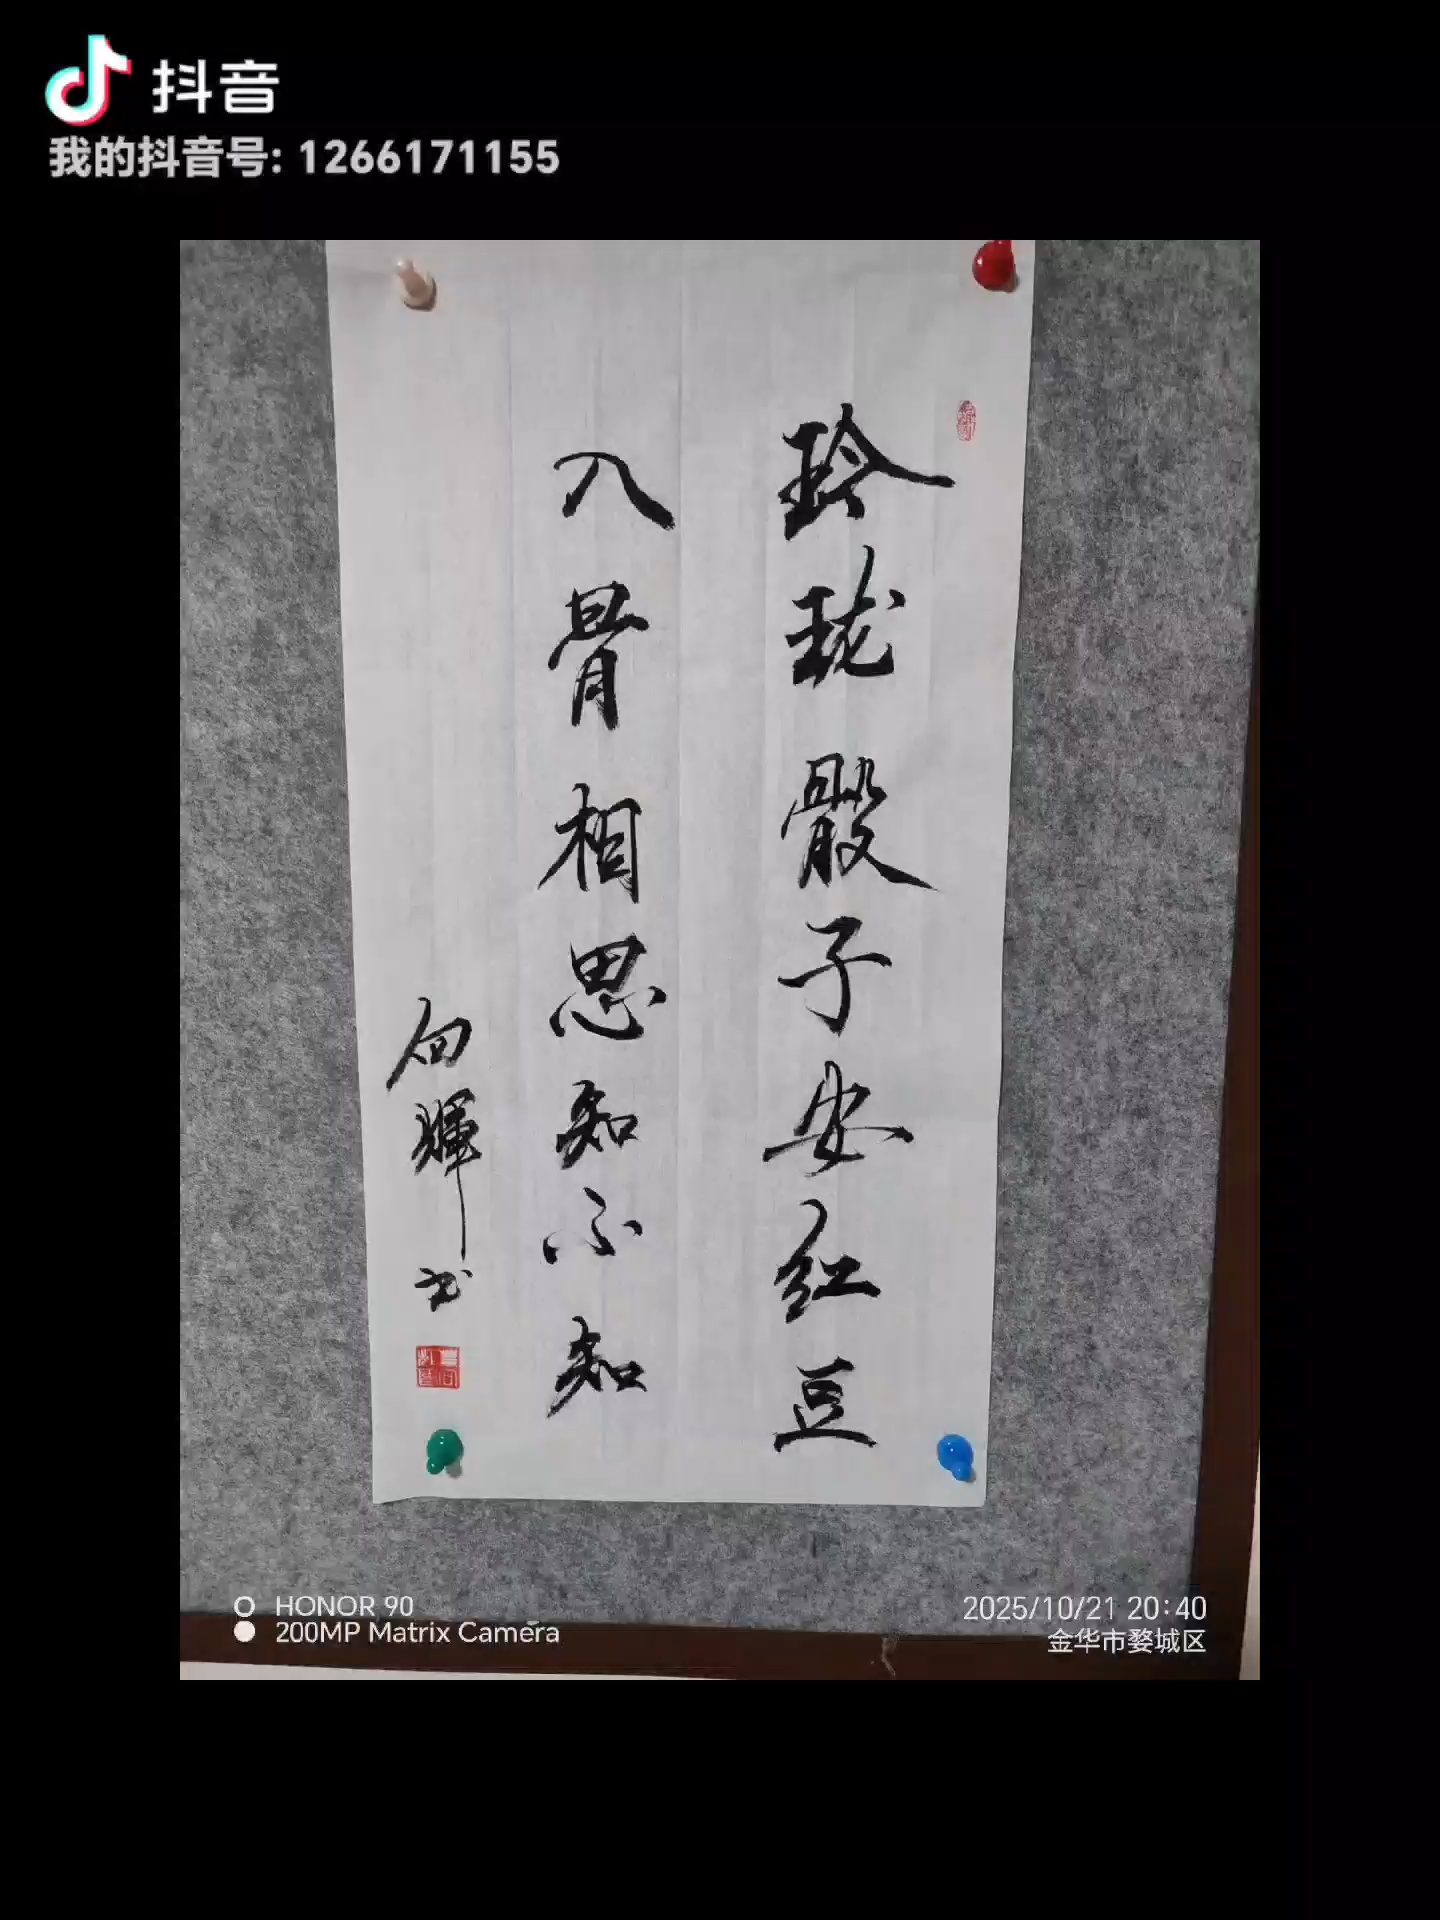 抖音
我的抖音号: 1266171155
玲珑骰子安红豆
入骨相思知不知
向辉书
HONOR 90
200MP Matrix Camera
2025/10/21 20:40
金华市婺城区